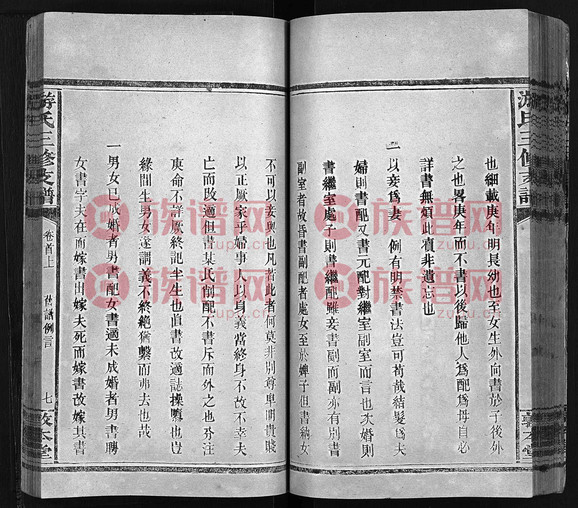 游氏三修支譜
也細載庚年明長幼也至女生外向書於子後外
之也畧庚年而不書以後歸他人爲配爲母自必
詳書無煩此瀆非遺忘也
一以妾爲妻例有明禁書法豈可苟哉結髮爲夫
婦則書配又書元配對繼室副室而言也次婚則
書繼室處子則書繼配雖妾書副而副亦有別書
副室者故昏書副配者處女至於婢子但書納女
敦本堂
不可以妾與也凡若此者何莫非別尊卑聞貴賤
以正厥家乎婦事人以身義當終身不改不幸夫
亡而敗適但書某氏削配不書斥而外之也夯注
庚命不許厥終記半生也直書改適誌操嚬也豈
緣間生男女遂謂義不終絕猶繫而弗去也哉
一男女已成婚者男書配女書適未成婚者男書聘
女書字夫在而嫁書出嫁夫死而嫁書改嫁其書
游氏三修支譜
卷首上
舊譜例言
七
敦本堂
族譜网